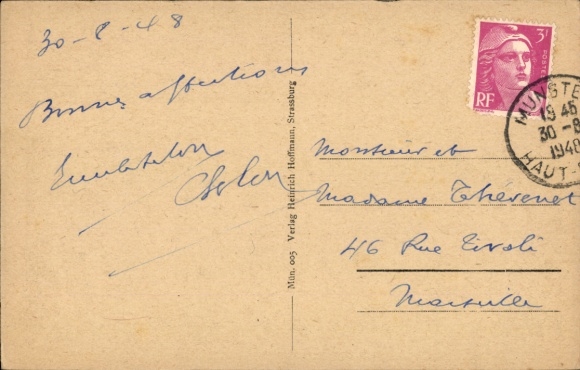 30-8-48
Bonnes affections
Mün. 005 Verlag Heinrich Hoffmann, Strassburg
3F
POSTES
RF
MUNSTE
19 45
30-8
1948
HAUT-
Monsieur et
Madame Thévenet
46 Rue Tivoli
Marseille